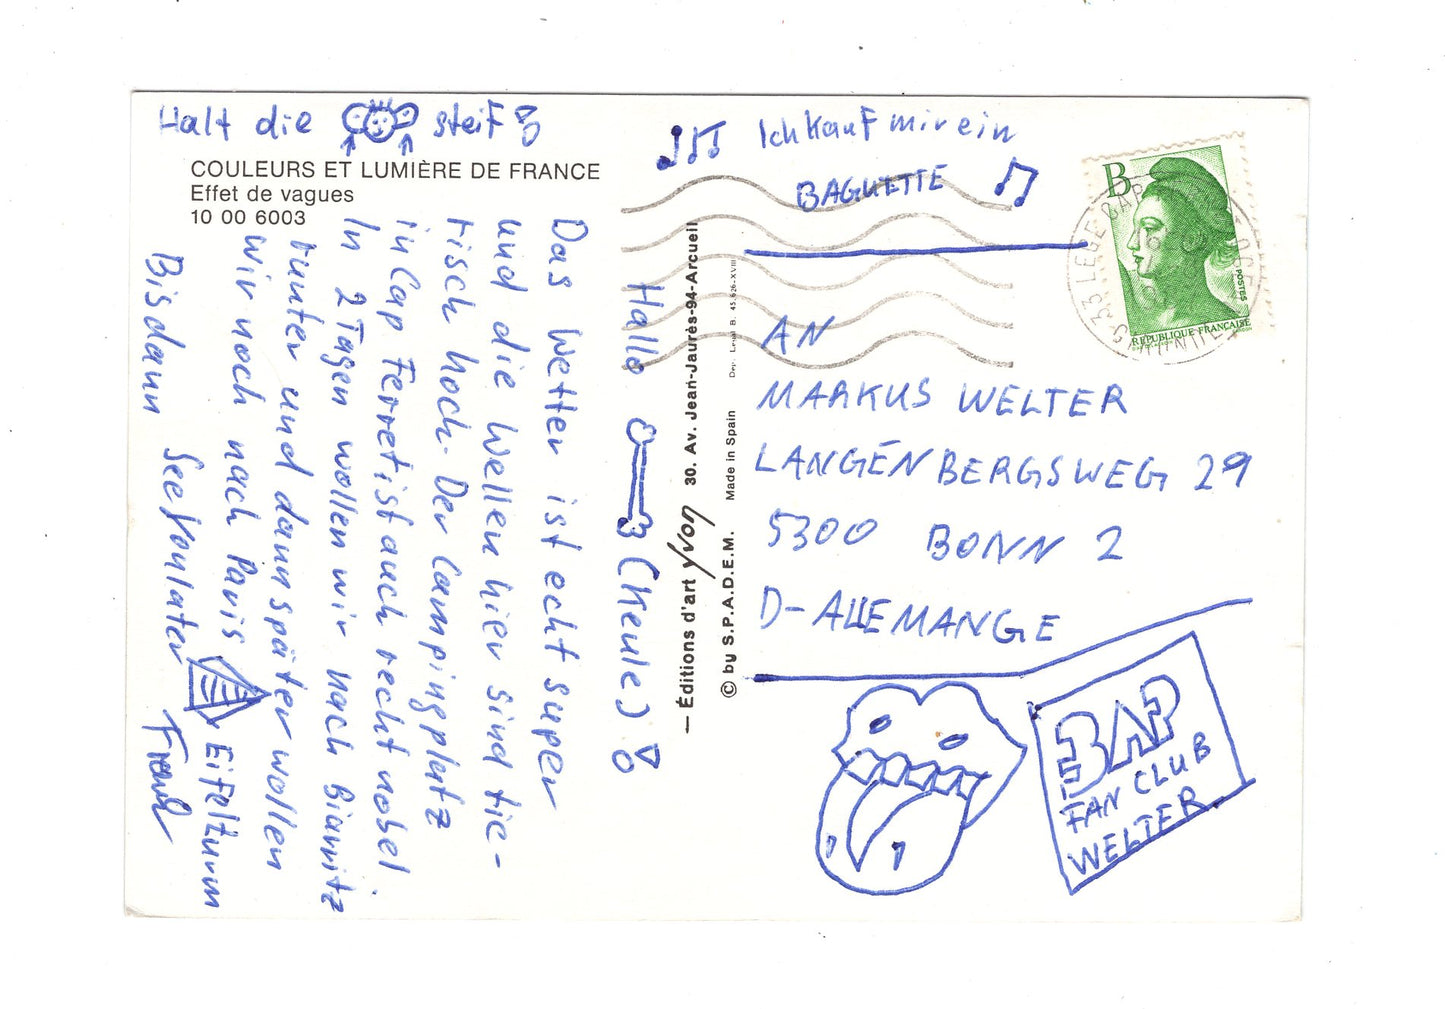 Halt die steif
COULEURS ET LUMIÈRE DE FRANCE
Effet de vagues
10 00 6003
Hallo (Keule)
Das Wetter ist echt super
und die Wellen hier sind tie-
risch hoch. Der Campingplatz
in Cap Ferret ist auch recht nobel.
In 2 Tagen wollen wir nach Biarritz
runter und dann später wollen
wir noch nach Paris
Eifelturm
Bis dann See You later
Frank
— Éditions d'art Yvon 30. Av. Jean-Jaurès-94-Arcueil
© by S.P.A.D.E.M. Made in Spain Dep. Legal B. 45.626-XVIII
Ich kauf mir ein
BAGUETTE
B
POSTES
REPUBLIQUE FRANÇAISE
AN
MARKUS WELTER
LANGENBERGSWEG 29
5300 BONN 2
D-ALLEMANGE
BAP
FAN CLUB
WELTER